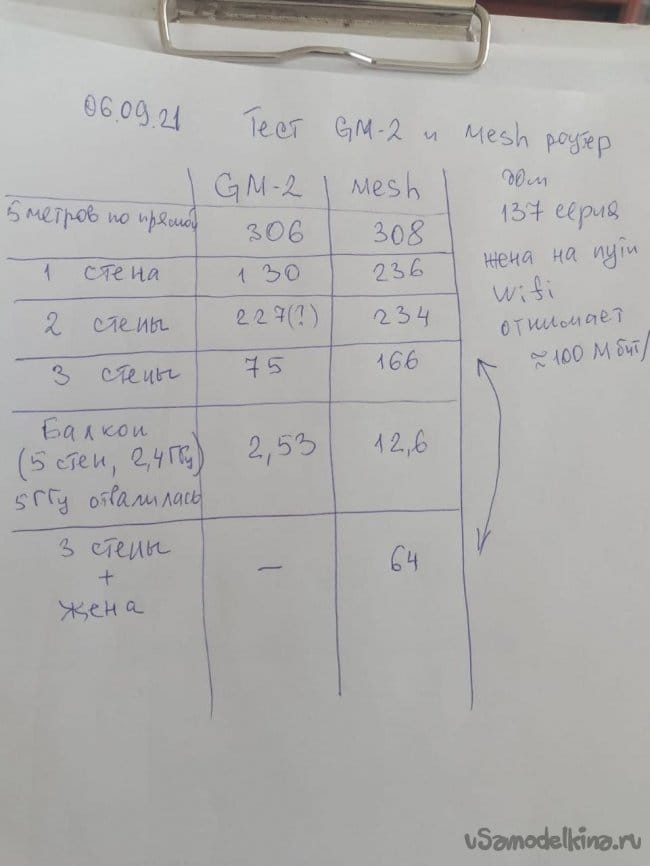 06.09.21 Тест GM-2 и Mesh роутер
GM-2 Mesh
5 метров по прямой 306 308
1 стена 130 236
2 стены 227(?) 234
3 стены 75 166
Балкон
(5 стен, 2,4 ГГц) 2,53 12,6
5 ГГц отвалилась
3 стены
+
жена — 64
дом
137 серия
жена на пути
Wifi
отнимает
≈100 Мбит/
vSamodelkina.ru